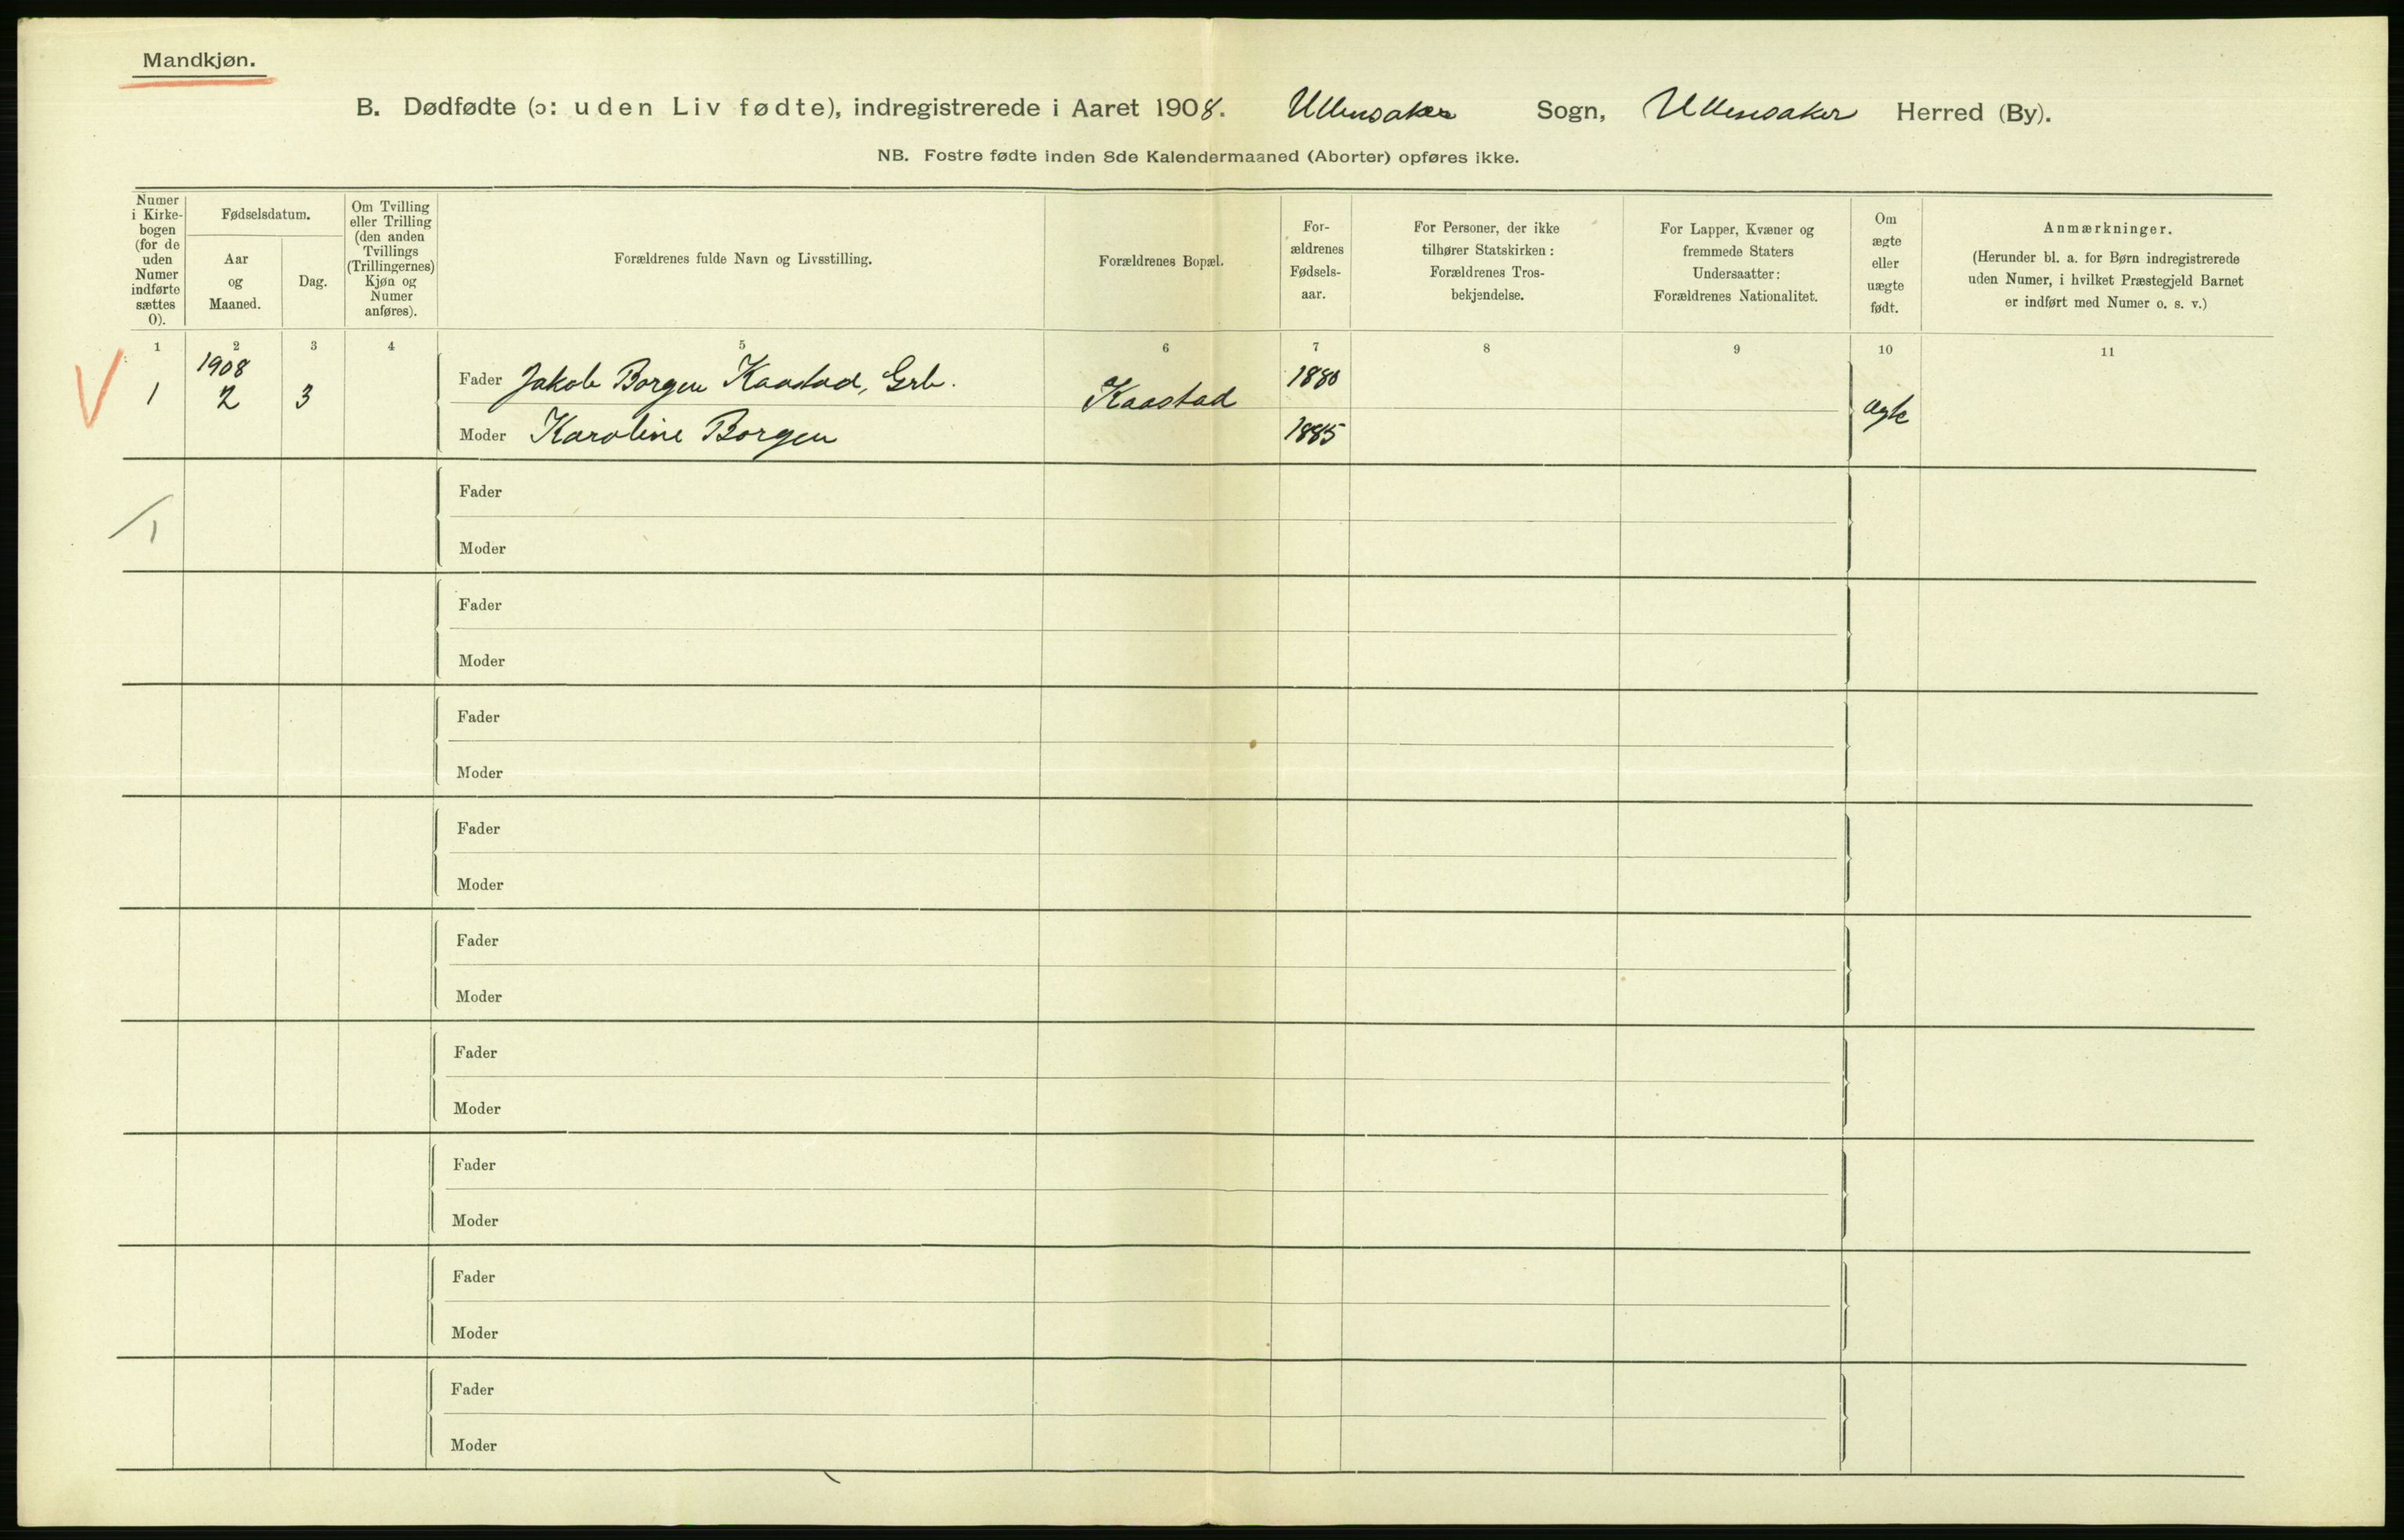 Mandkjøn.
B. Dødfødte (ɔ: uden Liv fødte), indregistrerede i Aaret 1908. Ullensaker Sogn, Ullensaker Herred (By).
NB. Fostre fødte inden 8de Kalendermaaned (Aborter) opføres ikke.
Numer
i Kirke-
bogen
(for de
uden
Numer
indførte
sættes
0).
Fødselsdatum.
Aar
og
Maaned.
Dag.
Om Tvilling
eller Trilling
(den anden
Tvillings
(Trillingernes)
Kjøn og
Numer
anføres).
Forældrenes fulde Navn og Livsstilling.
Forældrenes Bopæl.
For-
ældrenes
Fødsels-
aar.
For Personer, der ikke
tilhører Statskirken:
Forældrenes Tros-
bekjendelse.
For Lapper, Kvæner og
fremmede Staters
Undersaatter:
Forældrenes Nationalitet.
Om
ægte
eller
uægte
født.
Anmærkninger.
(Herunder bl. a. for Børn indregistrerede
uden Numer, i hvilket Præstegjeld Barnet
er indført med Numer o. s. v.)
1 2 3 4 5 6 7 8 9 10 11
1908
1 2 3
Fader Jakob Borgen Kaastad, Grb.
Moder Karoline Borgen
Kaastad
1880
1885
ægte
1
Fader
Moder
Fader
Moder
Fader
Moder
Fader
Moder
Fader
Moder
Fader
Moder
Fader
Moder
Fader
Moder
Fader
Moder